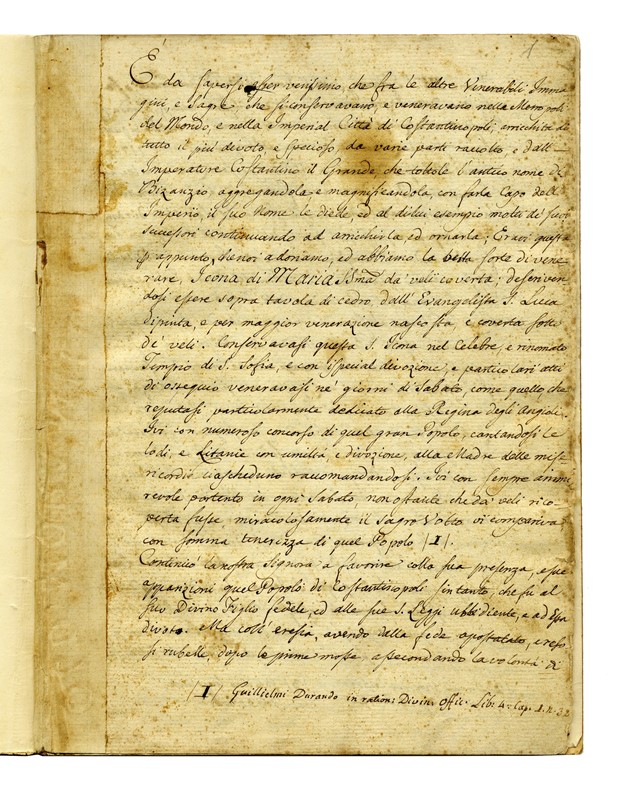 1
È da saversi per verissimo, che fra le altre Venerabili Imma-
gini, e Sagre che si conservavano, e veneravano nella Metropoli
del Mondo, e nella Imperial Città di Costantinopoli, arricchita di
tutto il più divoto, e specioso, da varie parti raccolto, e dall'
Imperatore Costantino il Grande, che toltole l'antico nome di
Bizanzio, aggregandola e magnificandola, con farla Capo dell'
Imperio, il suo Nome le diede, ed al di lui esempio molti de' suoi
successori continuando ad arricchirla, ed ornarla; Eravi questa
appunto, che noi adoriamo, ed abbiamo la bella sorte di vene-
rare, Icona di MARIA SSma da' veli coverta; descriven-
dosi essere sopra tavola di cedro, dall' Evangelista S. Luca
dipinta, e per maggior venerazione nascosta, e coverta sotto
de' veli. Conservavasi questa S. Icona nel Celebre, e rinomato
Tempio di S. Sofia, e con ispecial divozione, e particolari atti
di ossequio veneravasi ne' giorni di Sabato, come quello, che
reputasi particolarmente dedicato alla Regina degli Angioli.
Ivi con numeroso concorso di quel gran Popolo, cantandosi le
lodi, e Litanie con umiltà e divozione, alla Madre delle mise-
ricordie ciascheduno raccomandandosi. Ivi con sempre ammi-
revole portento in ogni Sabato, non ostante che da' veli rico-
perta fusse, miracolosamente il Sagro Volto vi compariva
con somma tenerezza di quel Popolo /I/.
Continuò la nostra Signora a favorire colla sua presenza, e sue
apparizioni quel Popolo di Costantinopoli sin tanto, che fu al
suo Divino Figlio fedele, ed alle sue S. Leggi ubbidiente, e ad Essa
divoto. Ma coll' eresia, avendo dalla fede apostatato, e reso-
si rubelle, dopo le prime mosse, assecondando la volontà di
/I/ Guillielmi Durando in ration: Divin. Offic. Lib: 4. Cap. 1. n. 32